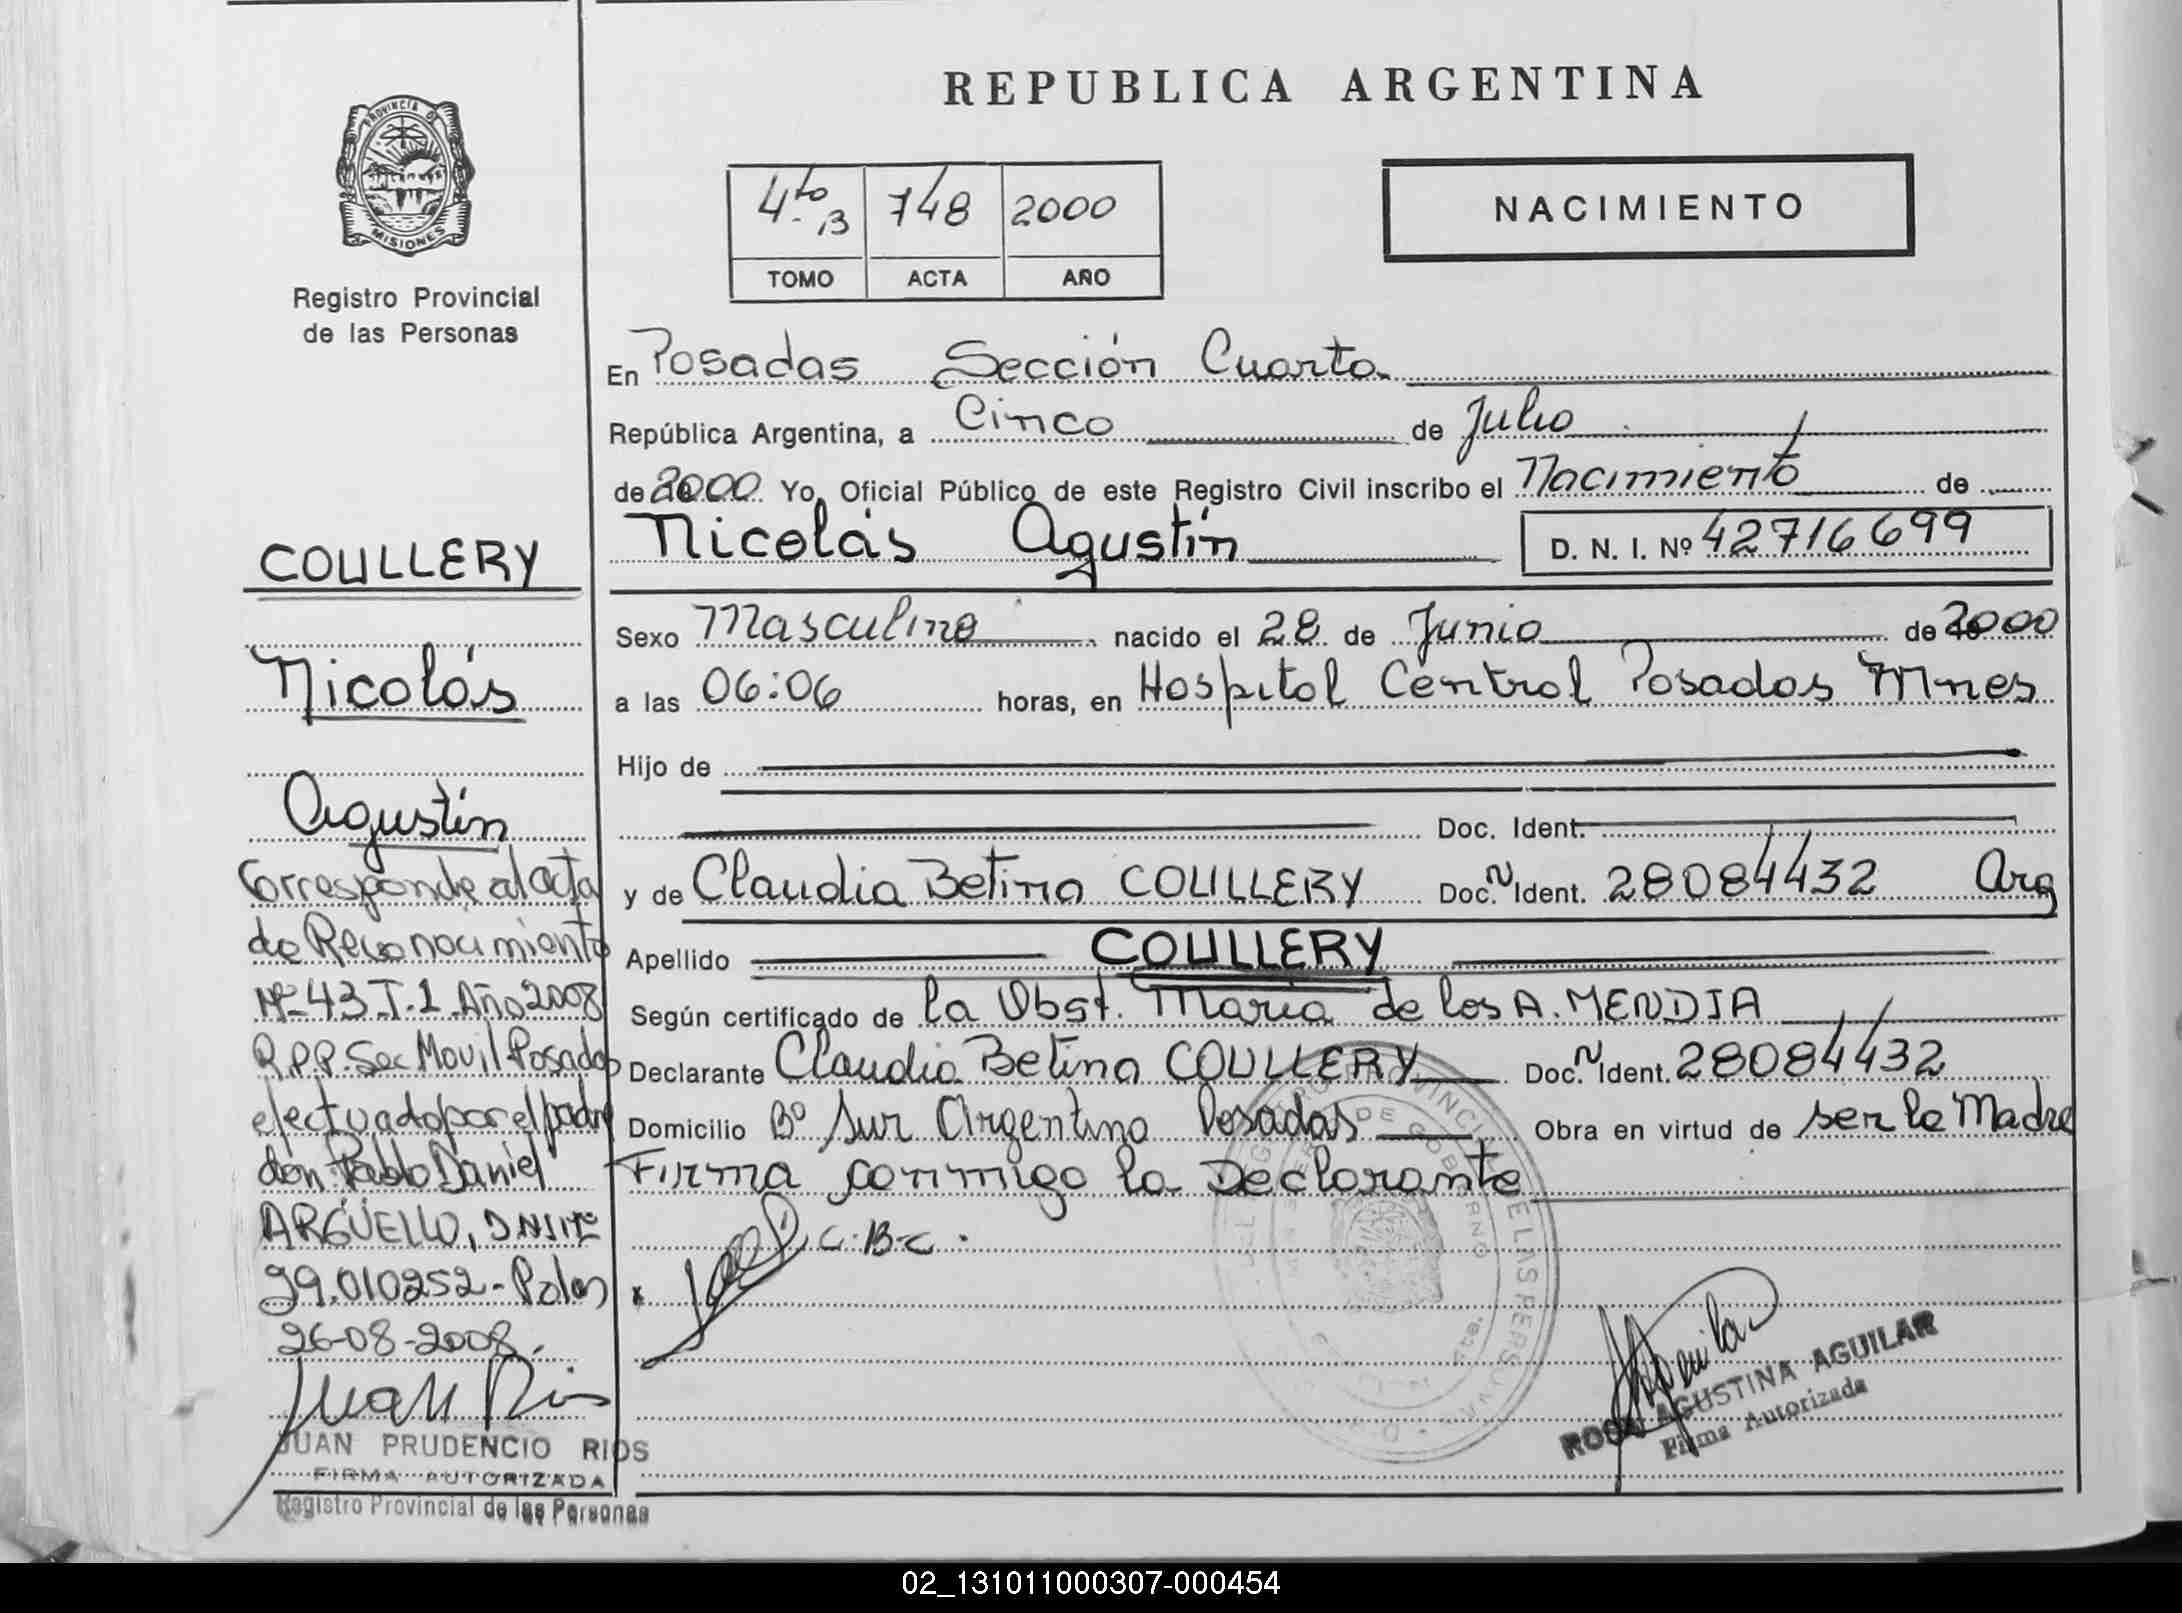 REPUBLICA ARGENTINA
PROVINCIA DE
MISIONES
Registro Provincial
de las Personas
4to B 748 2000
TOMO ACTA AÑO
NACIMIENTO
En Posadas Sección Cuarta
República Argentina, a Cinco de Julio
de 2000 Yo, Oficial Público de este Registro Civil inscribo el Nacimiento de
Nicolás Agustín D. N. I. Nº 42716699
Sexo Masculino nacido el 28 de Junio de 2000
a las 06:06 horas, en Hospital Central Posadas Mnes
Hijo de
Doc. Ident.
y de Claudia Betina COULLERY Doc. Nº Ident. 28084432 Arg
Apellido COULLERY
Según certificado de la Obst. María de los A. MENDIA
Declarante Claudia Betina COULLERY Doc. Nº Ident. 28084432
Domicilio Bº Sur Argentino Posadas Obra en virtud de ser la Madre
Firma conmigo la Declarante
C.B.C.
ROSA AGUSTINA AGUILAR
Firma Autorizada
COULLERY
Nicolás
Agustín
Corresponde al acta
de Reconocimiento
Nº 43 T. 1 Año 2008
R.P.P. Sec Movil Posadas
efectuado por el padre
don Pablo Daniel
ARGÜELLO, DNI Nº
29.010252 - Pdas
26-08-2008.
Juan Rios
JUAN PRUDENCIO RIOS
FIRMA AUTORIZADA
Registro Provincial de las Personas
02_131011000307-000454